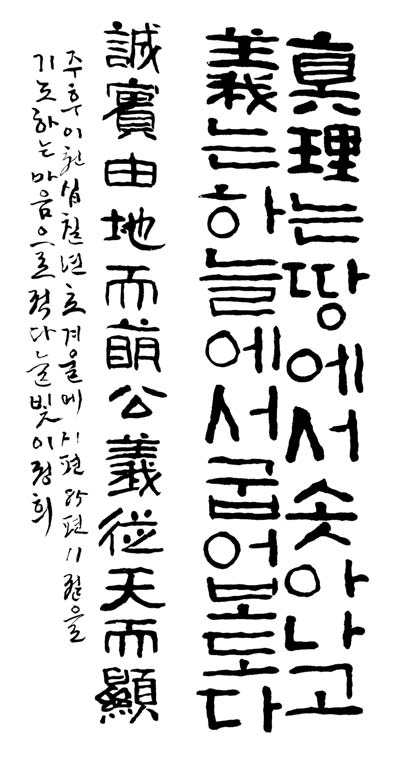 真理는땅에서솟아나고
義는하늘에서굽어보도다
誠實由地而萌公義從天而顯
주후이천십칠년초겨울에시편85편11절을
기도하는마음으로적다늘빛이정희